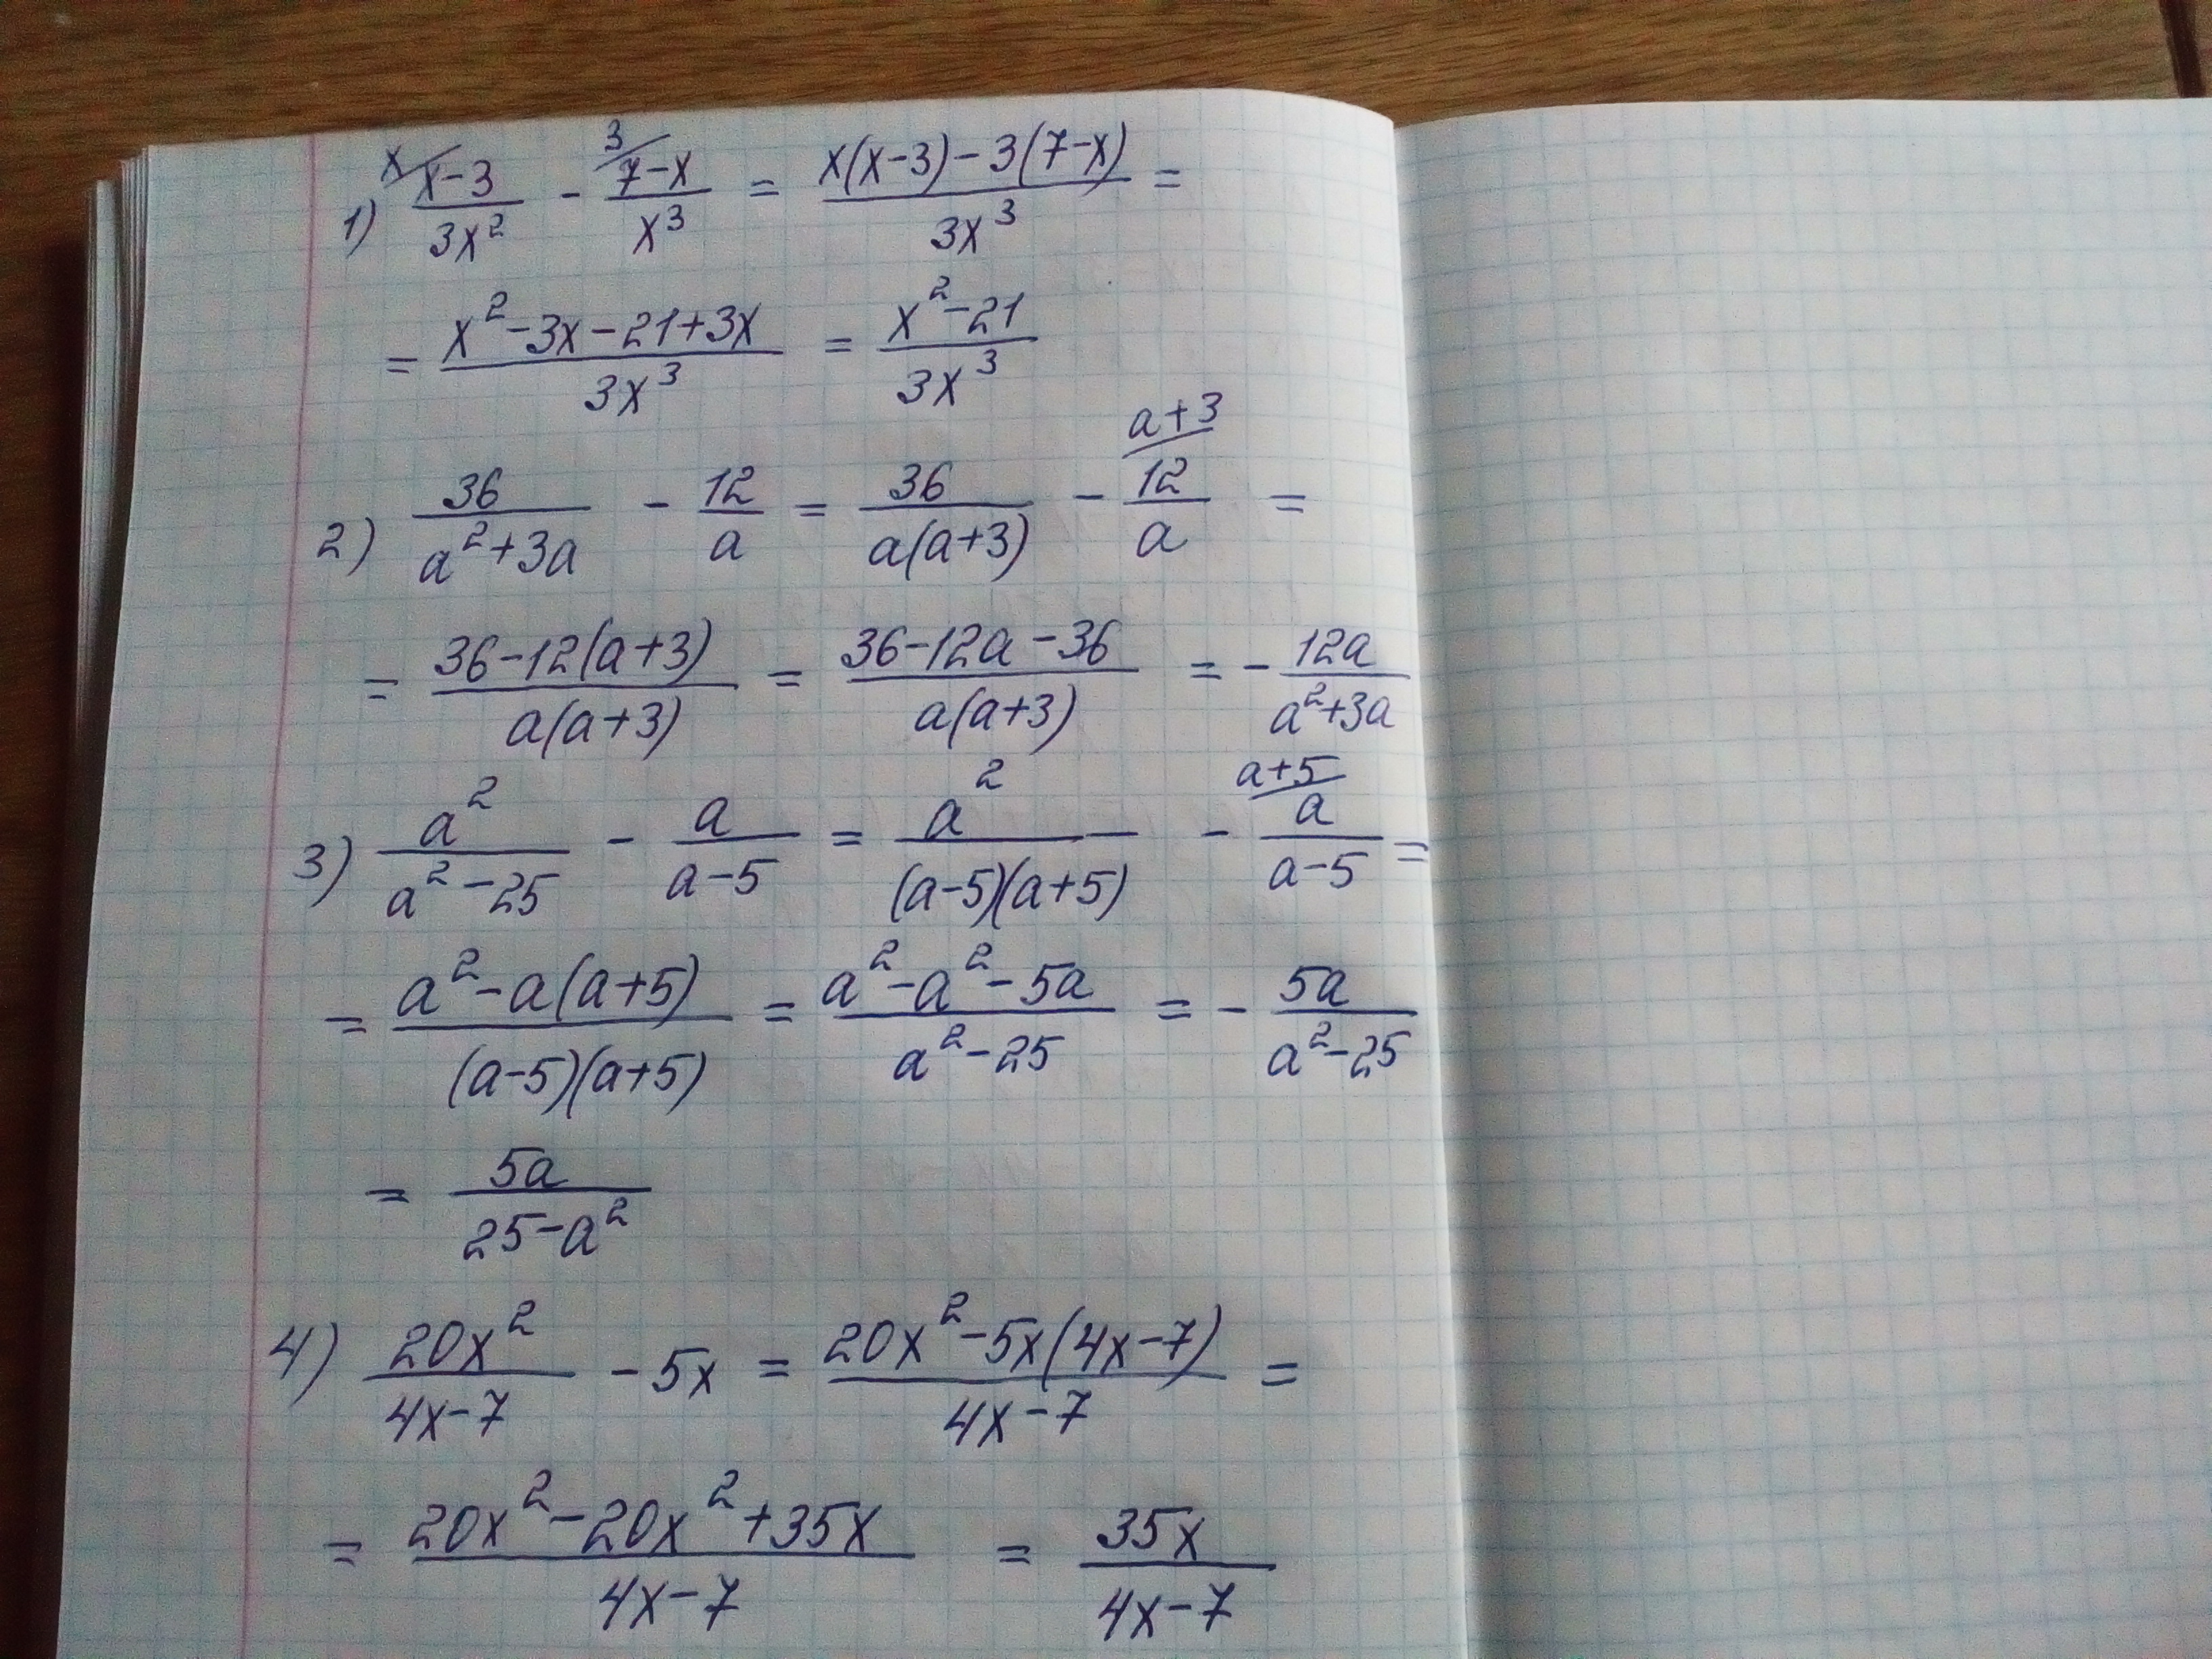 1) ˣ⁄(x-3)/(3x²) - ³⁄(7-x)/(x³) = (x(x-3)-3(7-x))/(3x³) =
= (x²-3x-21+3x)/(3x³) = (x²-21)/(3x³)
2) 36/(a²+3a) - 12/a = 36/(a(a+3)) - ᵃ⁺³⁄12/a =
= (36-12(a+3))/(a(a+3)) = (36-12a-36)/(a(a+3)) = - 12a/(a²+3a)
3) a²/(a²-25) - a/(a-5) = a²/((a-5)(a+5)) - ᵃ⁺⁵⁄a/(a-5) =
= (a²-a(a+5))/((a-5)(a+5)) = (a²-a²-5a)/(a²-25) = - 5a/(a²-25)
= 5a/(25-a²)
4) 20x²/(4x-7) - 5x = (20x²-5x(4x-7))/(4x-7) =
= (20x²-20x²+35x)/(4x-7) = 35x/(4x-7)